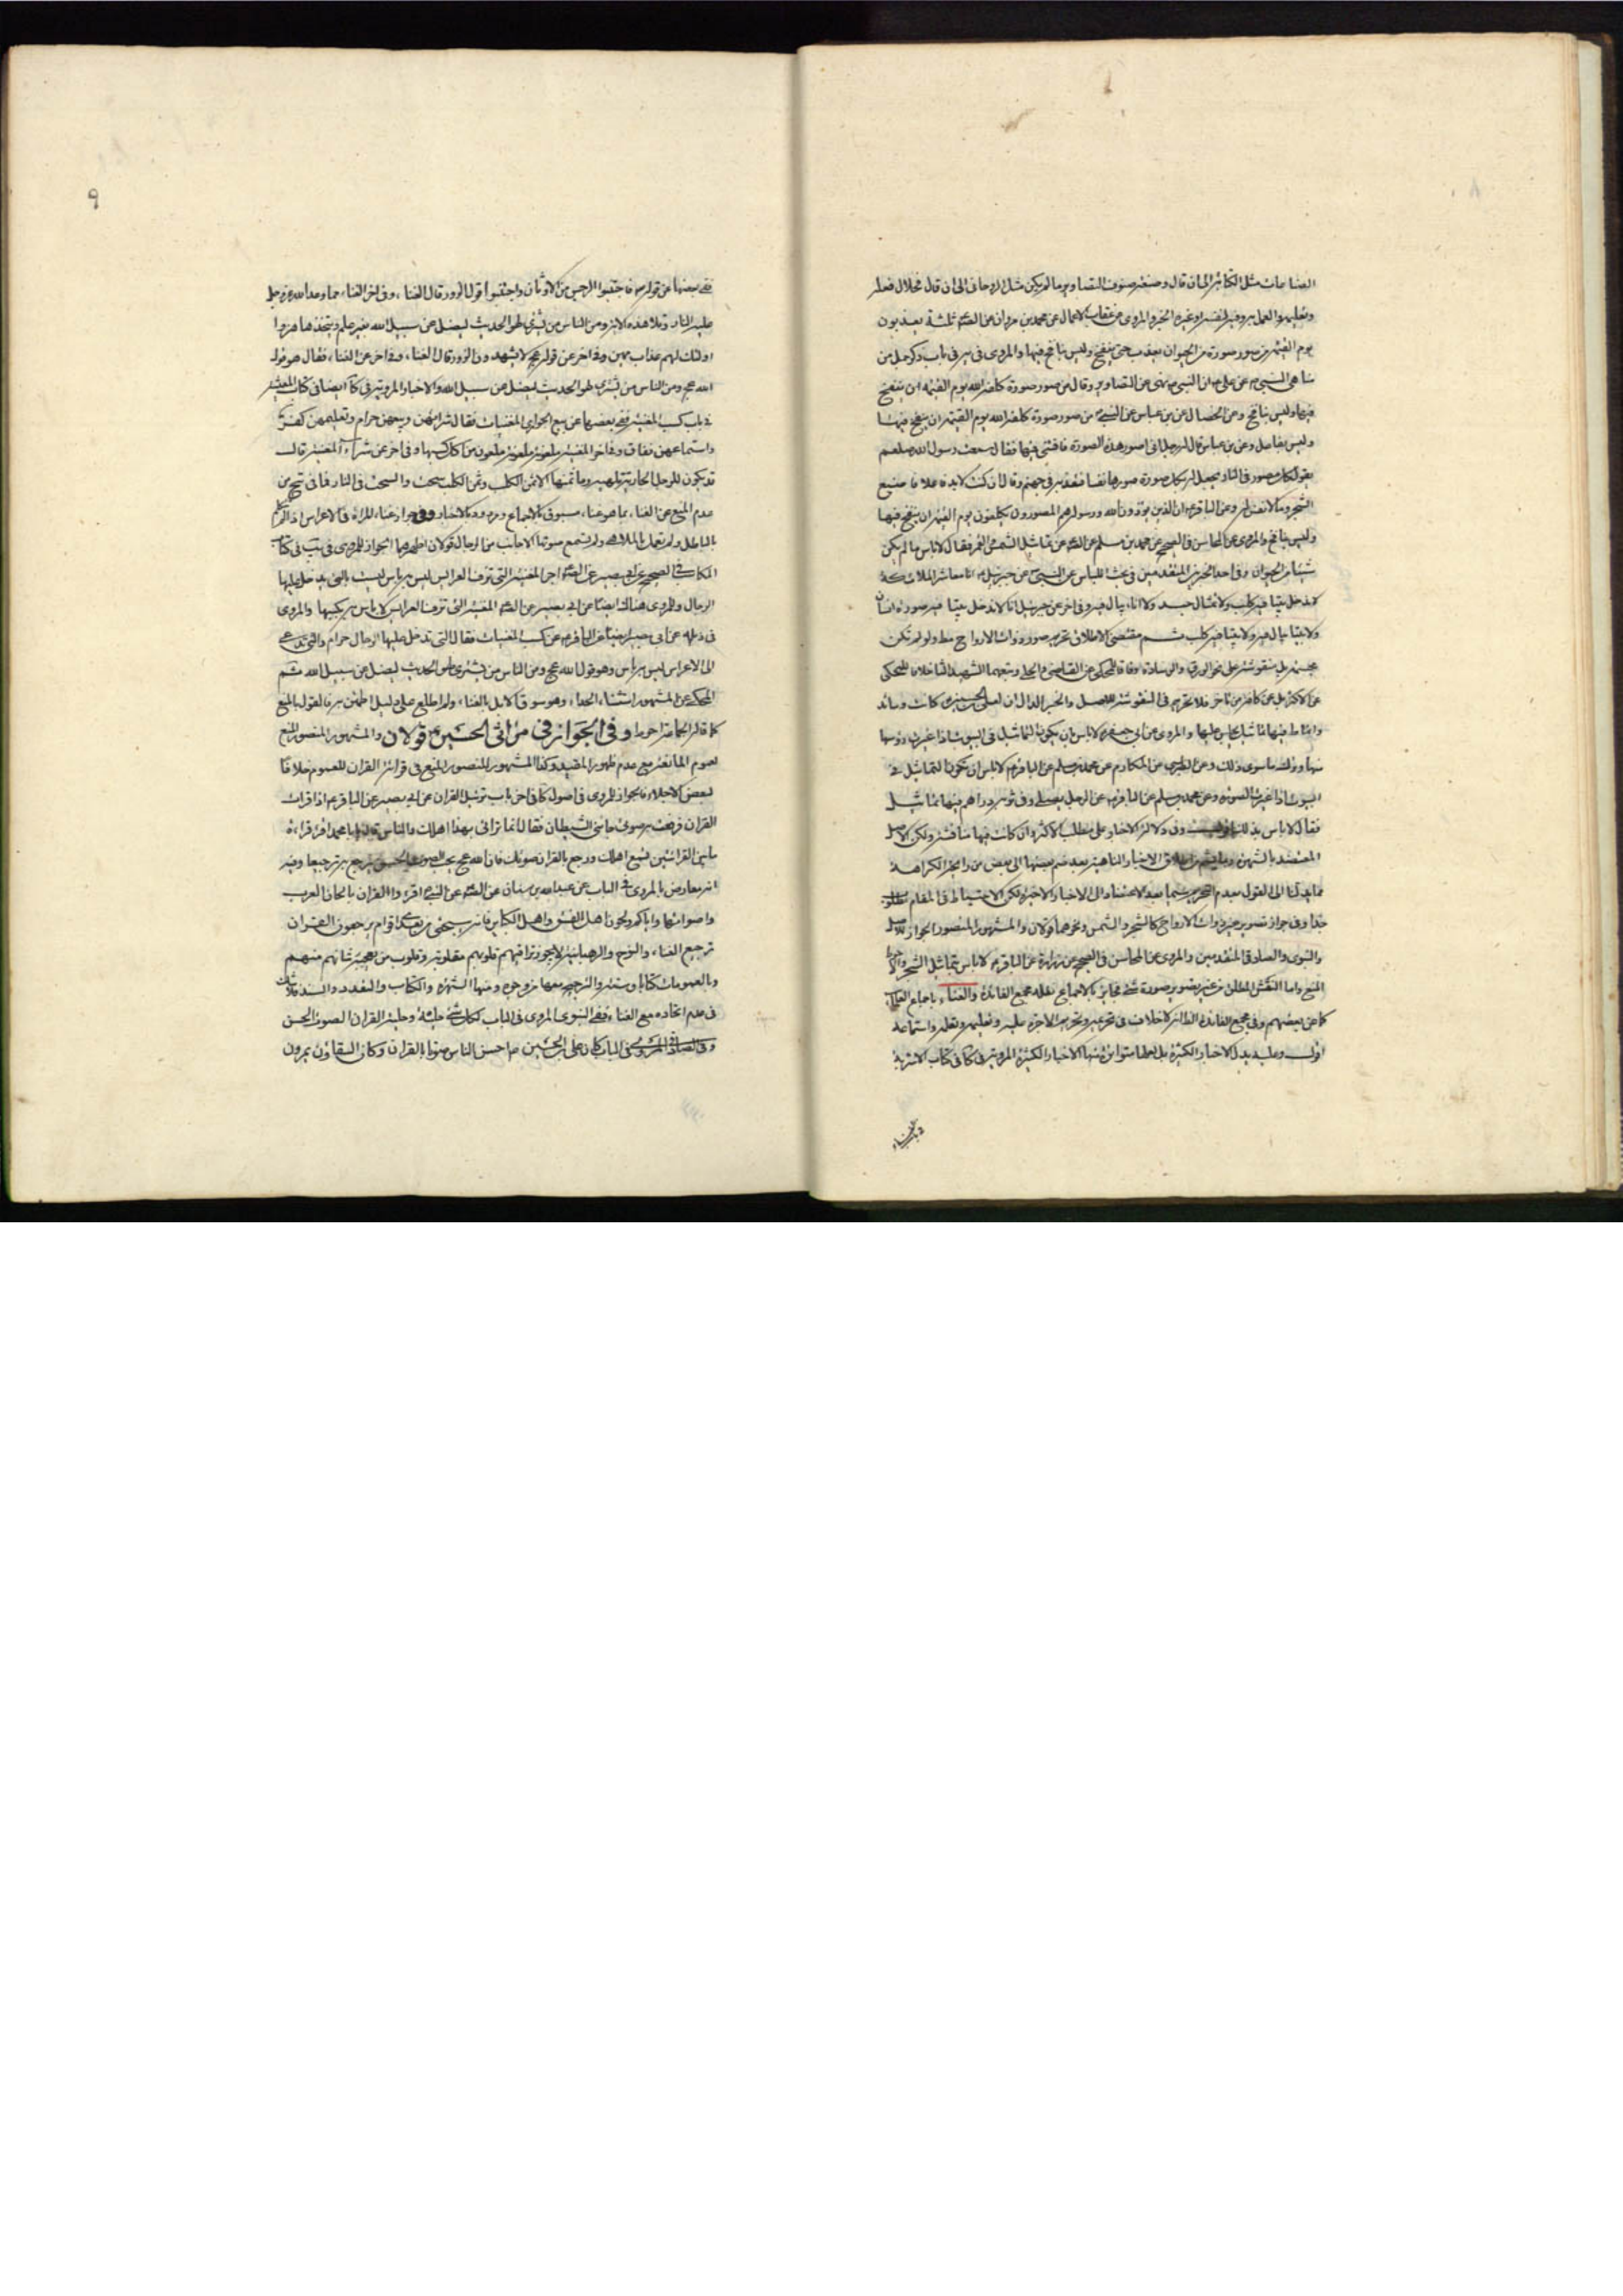 الصناعات مثل الكتابة الى ان قال وصنعة صنوف التصاوير ما لم يكن مثل الروحانى الى ان قال فحلال فعله
وتعليمه والعمل به وفيه لنفسه او غيره الخبر والمروى عن عقاب الاعمال عن محمد بن مروان عن الصّ ثلثة يعذبون
يوم القيمة من صور صورة من الحيوان يعذب حتى ينفخ وليس بنافخ فيها والمروى فى يه فى باب ذكر جمل من
مناهى النبى عن على ان النبى نهى عن التصاوير وقال من صور صورة كلفه الله يوم القيمة ان ينفخ
فيها وليس بنافخ وعن الخصال عن بن عباس عن النبى من صور صورة كلفه الله يوم القيمة ان ينفخ فيها
وليس بفاعل وعن بن عباس قال له رجل انى اصور هذه الصورة فافتنى فيها فقال سمعت رسول الله صلعم
يقول كل مصور فى النار يجعل له بكل صورة صورها نفسا فتعذبه فى جهنم وقال ان كنت لابد فاعلا فاصنع
الشجر وما لا نفس له وعن الباقر ان الذين يؤذون الله ورسوله هم المصورون يكلفون يوم القيمة ان ينفخ فيها
وليس بنافخ والمروى عن المحاسن فى الصحيح عن محمد بن مسلم عن الصّ عن تماثيل الشمس والقمر فقال لا باس ما لم يكن
شيئا من الحيوان وفى احد الخبرين المتقدمين فى بحث اللباس عن النبى عن جبرئيل انا معاشر الملائكة
لا ندخل بيتا فيه كلب ولا تمثال جسد ولا اناء يبال فيه وفى اخر عن جبرئيل انا لا ندخل بيتا فيه صورة انسان
ولا بيتا يبال فيه ولا بيتا فيه كلب ثم مقتضى الاطلاق تحريم صور ذوات الارواح مط ولو لم تكن
مجسمة بل منقوشة على نحو الورق والوسادة وفاقا للمحكى عن القاضى والحلى وتبعهما الشهيد الثانى خلافا للمحكى
عن الاكثر بل عن كافة من تاخر فلا تحريم فى المنقوشة للاصل والخبر الدال ان لعلى بن الحسين كانت وسائد
وانماط فيها تماثيل يجلس عليها والمروى عن ابى جعفر لا باس بان يكون التماثيل فى البيوت اذا غيرت رؤسها
منها وترك ما سوى ذلك وعن الطبرسى عن المكارم عن محمد بن مسلم عن الباقر لا باس ان تكون التماثيل فى
البيوت اذا غيرت الصورة وعن محمد بن مسلم عن الباقر عن الرجل يصلى وفى ثوبه دراهم فيها تماثيل
فقال لا باس بذلك وفى دلالة الاخبار على مطلب الاكثر وان كانت فيها مناقشة ولكن الاصل
المعتضد بالشهرة الاخبار الناهية بعد ضم بعضها الى بعض من رايحة الكراهة
مما يدلنا الى القول بعدم التحريم سيما بعد الاعتضاد الى الاخبار الاخيرة ولكن الاحتياط فى المقام مطلوب
جدا وفى جواز تصوير غير ذوات الارواح كالشجر والشمس ونحوهما قولان والمشهور المنصور الجواز للاصل
والنبوى والصادقى المتقدمين والمروى عن المحاسن فى الصحيح عن زرارة عن الباقر لا باس بتماثيل الشجر والاحوط
المنع واما النقش المطلق من غير تصوير صورة شئ فجايز بالاجماع نقله مجمع الفائدة والغناء باجماع العلماء
كما عن بعضهم وفى مجمع الفائدة الظاهر لا خلاف فى تحريمه وتحريم الاجرة عليه وتعليمه وتعلمه واستماعه
اقول وعليه يدل الاخبار الكثيرة بل لعلها متواترة منها الاخبار الكثيرة المروية فى كا فى كتاب الاشربة
٩
ففى بعضها عن قوله فاجتنبوا الرجس من الاوثان واجتنبوا قول الزور قال الغناء وفى اخر الغناء مما وعد الله عز وجل
عليه النار وتلا هذه الاية ومن الناس من يشترى لهو الحديث ليضل عن سبيل الله بغير علم ويتخذها هزوا
اولئك لهم عذاب مهين وفى اخر عن قوله عج لا يشهدون الزور قال الغناء وفى اخر عن الغناء فقال هو قول
الله عج ومن الناس من يشترى لهو الحديث ليضل عن سبيل الله والاخبار المروية فى كا ايضا فى كتاب المعيشة
فى باب كسب المغنية ففى بعضها عن بيع الجوارى المغنيات فقال شرائهن وبيعهن حرام وتعليمهن كفر
واستماعهن نفاق وفى اخر المغنية ملعونة ملعون من اكل كسبها وفى اخر عن شراء المغنية قال
قد يكون للرجل الجارية تلهيه وما ثمنها الا ثمن الكلب وثمن الكلب سحت والسحت فى النار فما فى تج من
عدم المنع عن الغناء بما هو غناء مسبوق بالاجماع ومردود بالاخبار وفى جواز غناء المراة فى الاعراس اذا لم تتكلم
بالباطل ولم تعمل بالملاهى ولم تسمع صوتها الاجانب من الرجال قولان اظهرهما الجواز للمروى فى يب فى كتاب
المكاسب فى الصحيح عن ابى بصير عن الصّ اجر المغنية التى تزف العرايس ليس به باس ليست بالتى يدخل عليها
الرجال والمروى هناك ايضا عن ابى بصير عن الصّ المغنية التى تزف العرايس لا باس بكسبها والمروى
فى ذيله عن ابى بصير ايضا عن الباقر عن كسب المغنيات فقال التى تدخل عليها الرجال حرام والتى تدعى
الى الاعراس ليس به باس وهو قول الله عج ومن الناس من يشترى لهو الحديث ليضل عن سبيل الله ثم
المحكى عن المشهور استثناء الحداء وهو سوق الابل بالغناء ولم اطلع على دليل اطمئن به فالقول بالمنع
كما قاله الجماعة احوط وفى الجواز فى مراثى الحسين ع قولان والمشهور المنصور المنع
لعموم المانعة مع عدم ظهور المقيد وكذا المشهور المنصور المنع فى قرائة القران للعموم خلافا
لبعض الاجلاء فالجواز للمروى فى اصول كا فى اخر باب ترتيل القران عن ابى بصير عن الباقر اذا قرات
القران فرفعت به صوتى جائنى الشيطان فقال انما ترائى بهذا اهلك والناس قال يا با محمد اقرا قراءة
ما بين القرائتين تسمع اهلك ورجع بالقران صوتك فان الله عج يحب الصوت الحسن يرجع به ترجيعا وفيه
انه معارض بالمروى فى الباب عن عبد الله بن سنان عن الصّ عن النبى اقرءوا القران بالحان العرب
واصواتها واياكم ولحون اهل الفسق واهل الكباير فانه سيجئ من بعدى اقوام يرجعون القران
ترجيع الغناء والنوح والرهبانية لا يجوز تراقيهم قلوبهم مقلوبة وقلوب من يعجبه شانهم منهم
وبالعمومات كتابا وسنة والترجيح معها من وجوه ومنها الشهرة والكتاب والتعدد والسند فلا شك
فى عدم اتحاده مع الغناء ففى النبوى المروى فى الباب لكل شئ حلية وحلية القران الصوت الحسن
وفى الصادقى المروى فى الباب كان على بن الحسين ع احسن الناس صوتا بالقران وكان السقاؤن يمرون